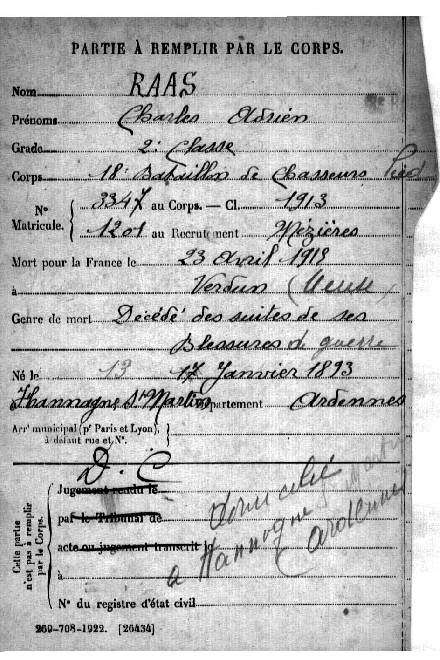 PARTIE À REMPLIR PAR LE CORPS.
Nom RAAS
Prénoms Charles Adrien
Grade 2e Classe
Corps 18e Bataillon de Chasseurs Pied
N° Matricule. { 3347 au Corps. — Cl. 1913
1201 au Recrutement Mézières
Mort pour la France le 23 Avril 1918
à Verdun (Meuse)
Genre de mort Décédé des suites de ses
Blessures de guerre
Né le 13 17 Janvier 1893
à Hannogne St Martin Département Ardennes
Arrt municipal (pr Paris et Lyon), à défaut rue et N°. }
D. C
Cette partie n'est pas à remplir par le Corps. { Jugement rendu le
par le Tribunal de
acte ou jugement transcrit le
à
domicilié
à Hannogne St Martin
(Ardennes
N° du registre d'état civil
269-708-1922. [26434]